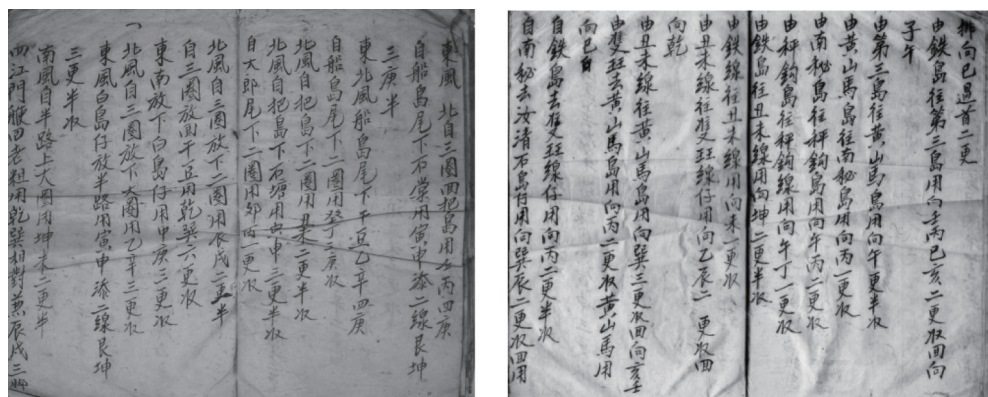 東風 北自三圈回把島用壬丙四庚
自船島尾下石棠用寅申添二線艮坤
三庚半
東北風船島尾下午豆乙辛四庚
自船島尾下二圈用癸丁三庚収
北風自把島下二圈用丑未二更半収
北風自把島下石塘用寅申三更半収
自大郎尾下二圈用卯酉一更収
北風自三圈放下二圈用辰戌二更半
自三圈放回午豆用乾巽六更収
東南放下白島仔用甲庚三更収
北風自三圈放下大圈用乙辛三更収
東風白島仔放半路用寅申添二線艮坤
三更半収
南風自半路上大圈用坤未二更半
四江門 回老粗用乾巽相對兼辰戌三
排向已過首二更
由鉄島往第三島用向壬丙巳亥二更収回向
子午
由第三島往黄山馬島用向午更半収
由黄山馬島往南秘島用向丙一更収
由南秘島往秤鈎島用向午丙二更収
由秤鈎島往秤鈎線用向午丁一更収
由鉄島往丑未線用向坤二更半収
由鉄線往丑未線用向未一更収
由丑未線往雙玨線仔用向乙辰二更収四
向乾
由丑未線往黄山馬島用向巽三更収回向亥壬
由雙玨去黄山馬島用向丙二更収黄山馬用
向巳自
自鉄島去雙玨線仔用向丙二更半収
自南秘去汝清石島仔用向巽辰二更収四用